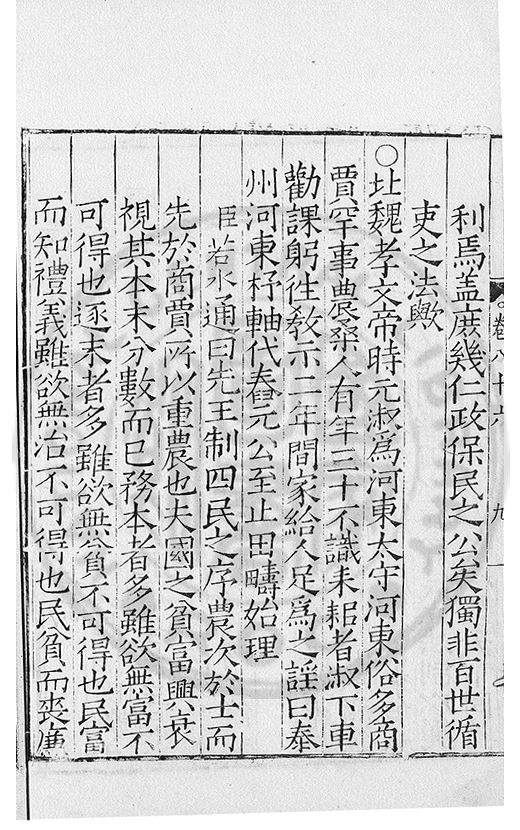 卷八十六 九
利焉盖庶幾仁政保民之公矣獨非百世循
吏之法歟
○北魏孝文帝時元淑爲河東太守河東俗多商
賈罕事農桑人有年三十不識耒耜者淑下車
勸課躬往教示二年間家給人足爲之謡曰泰
州河東杼軸代舂元公至止田疇始理
臣若水通曰先王制四民之序農次於士而
先於商賈所以重農也夫國之貧富興衰
視其本末分數而已務本者多雖欲無富不
可得也逐末者多雖欲無貧不可得也民富
而知禮義雖欲無治不可得也民貧而喪廉